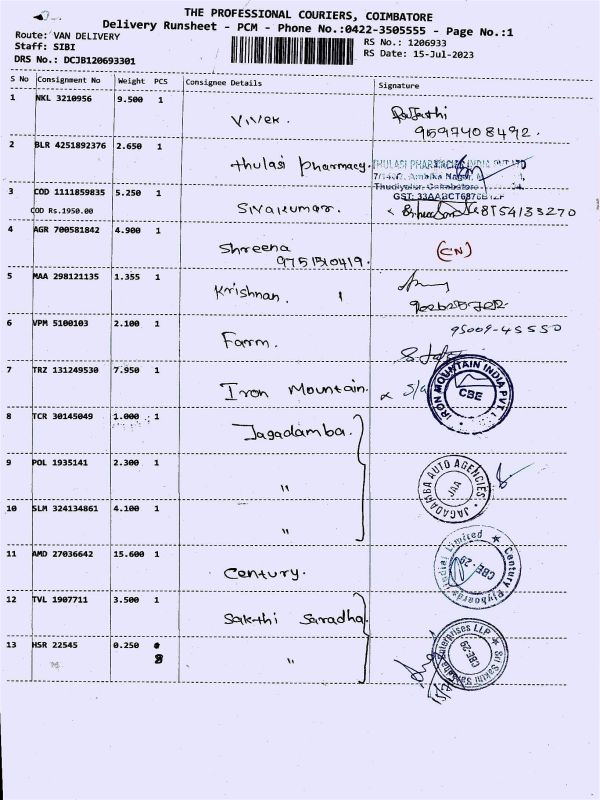 THE PROFESSIONAL COURIERS, COIMBATORE
Delivery Runsheet - PCM - Phone No.:0422-3505555 - Page No.:1
Route: VAN DELIVERY
RS No.: 1206933
Staff: SIBI
RS Date: 15-Jul-2023
DRS No.: DCJB120693301
S No Consignment No Weight PCS Consignee Details Signature
1 NKL 3210956 9.500 1
Vivek.
9597408492.
2 BLR 4251892376 2.650 1
thulasi pharmacy.
THULASI PHARMACIES INDIA PVT LTD
Ambika Nagar,
3 COD 1111859835 5.250 1
GST: 33AABCT6876B1ZF
COD Rs.1950.00
Sivakumar.
8754133270
4 AGR 700581842 4.900 1
Shreena
9751510419.
(CN)
5 MAA 298121135 1.355 1
Krishnan.
6 VPM 5100103 2.100 1
95009-45550
Farm.
7 TRZ 131249530 7.950 1
Iron Mountain.
IRON MOUNTAIN INDIA PVT.
CBE
8 TCR 30145049 1.000 1
Jagadamba.
9 POL 1935141 2.300 1
"
JAGADAMBA AUTO AGENCIES
JAA
10 SLM 324134861 4.100 1
"
11 AMD 27036642 15.600 1
Century.
Century Plyboards (India) Limited
CBE-29
12 TVL 1907711 3.500 1
Sakthi Saradha.
13 HSR 22545 0.250
"
Sri Sakthi Saradha Enterprises LLP
CBE-29